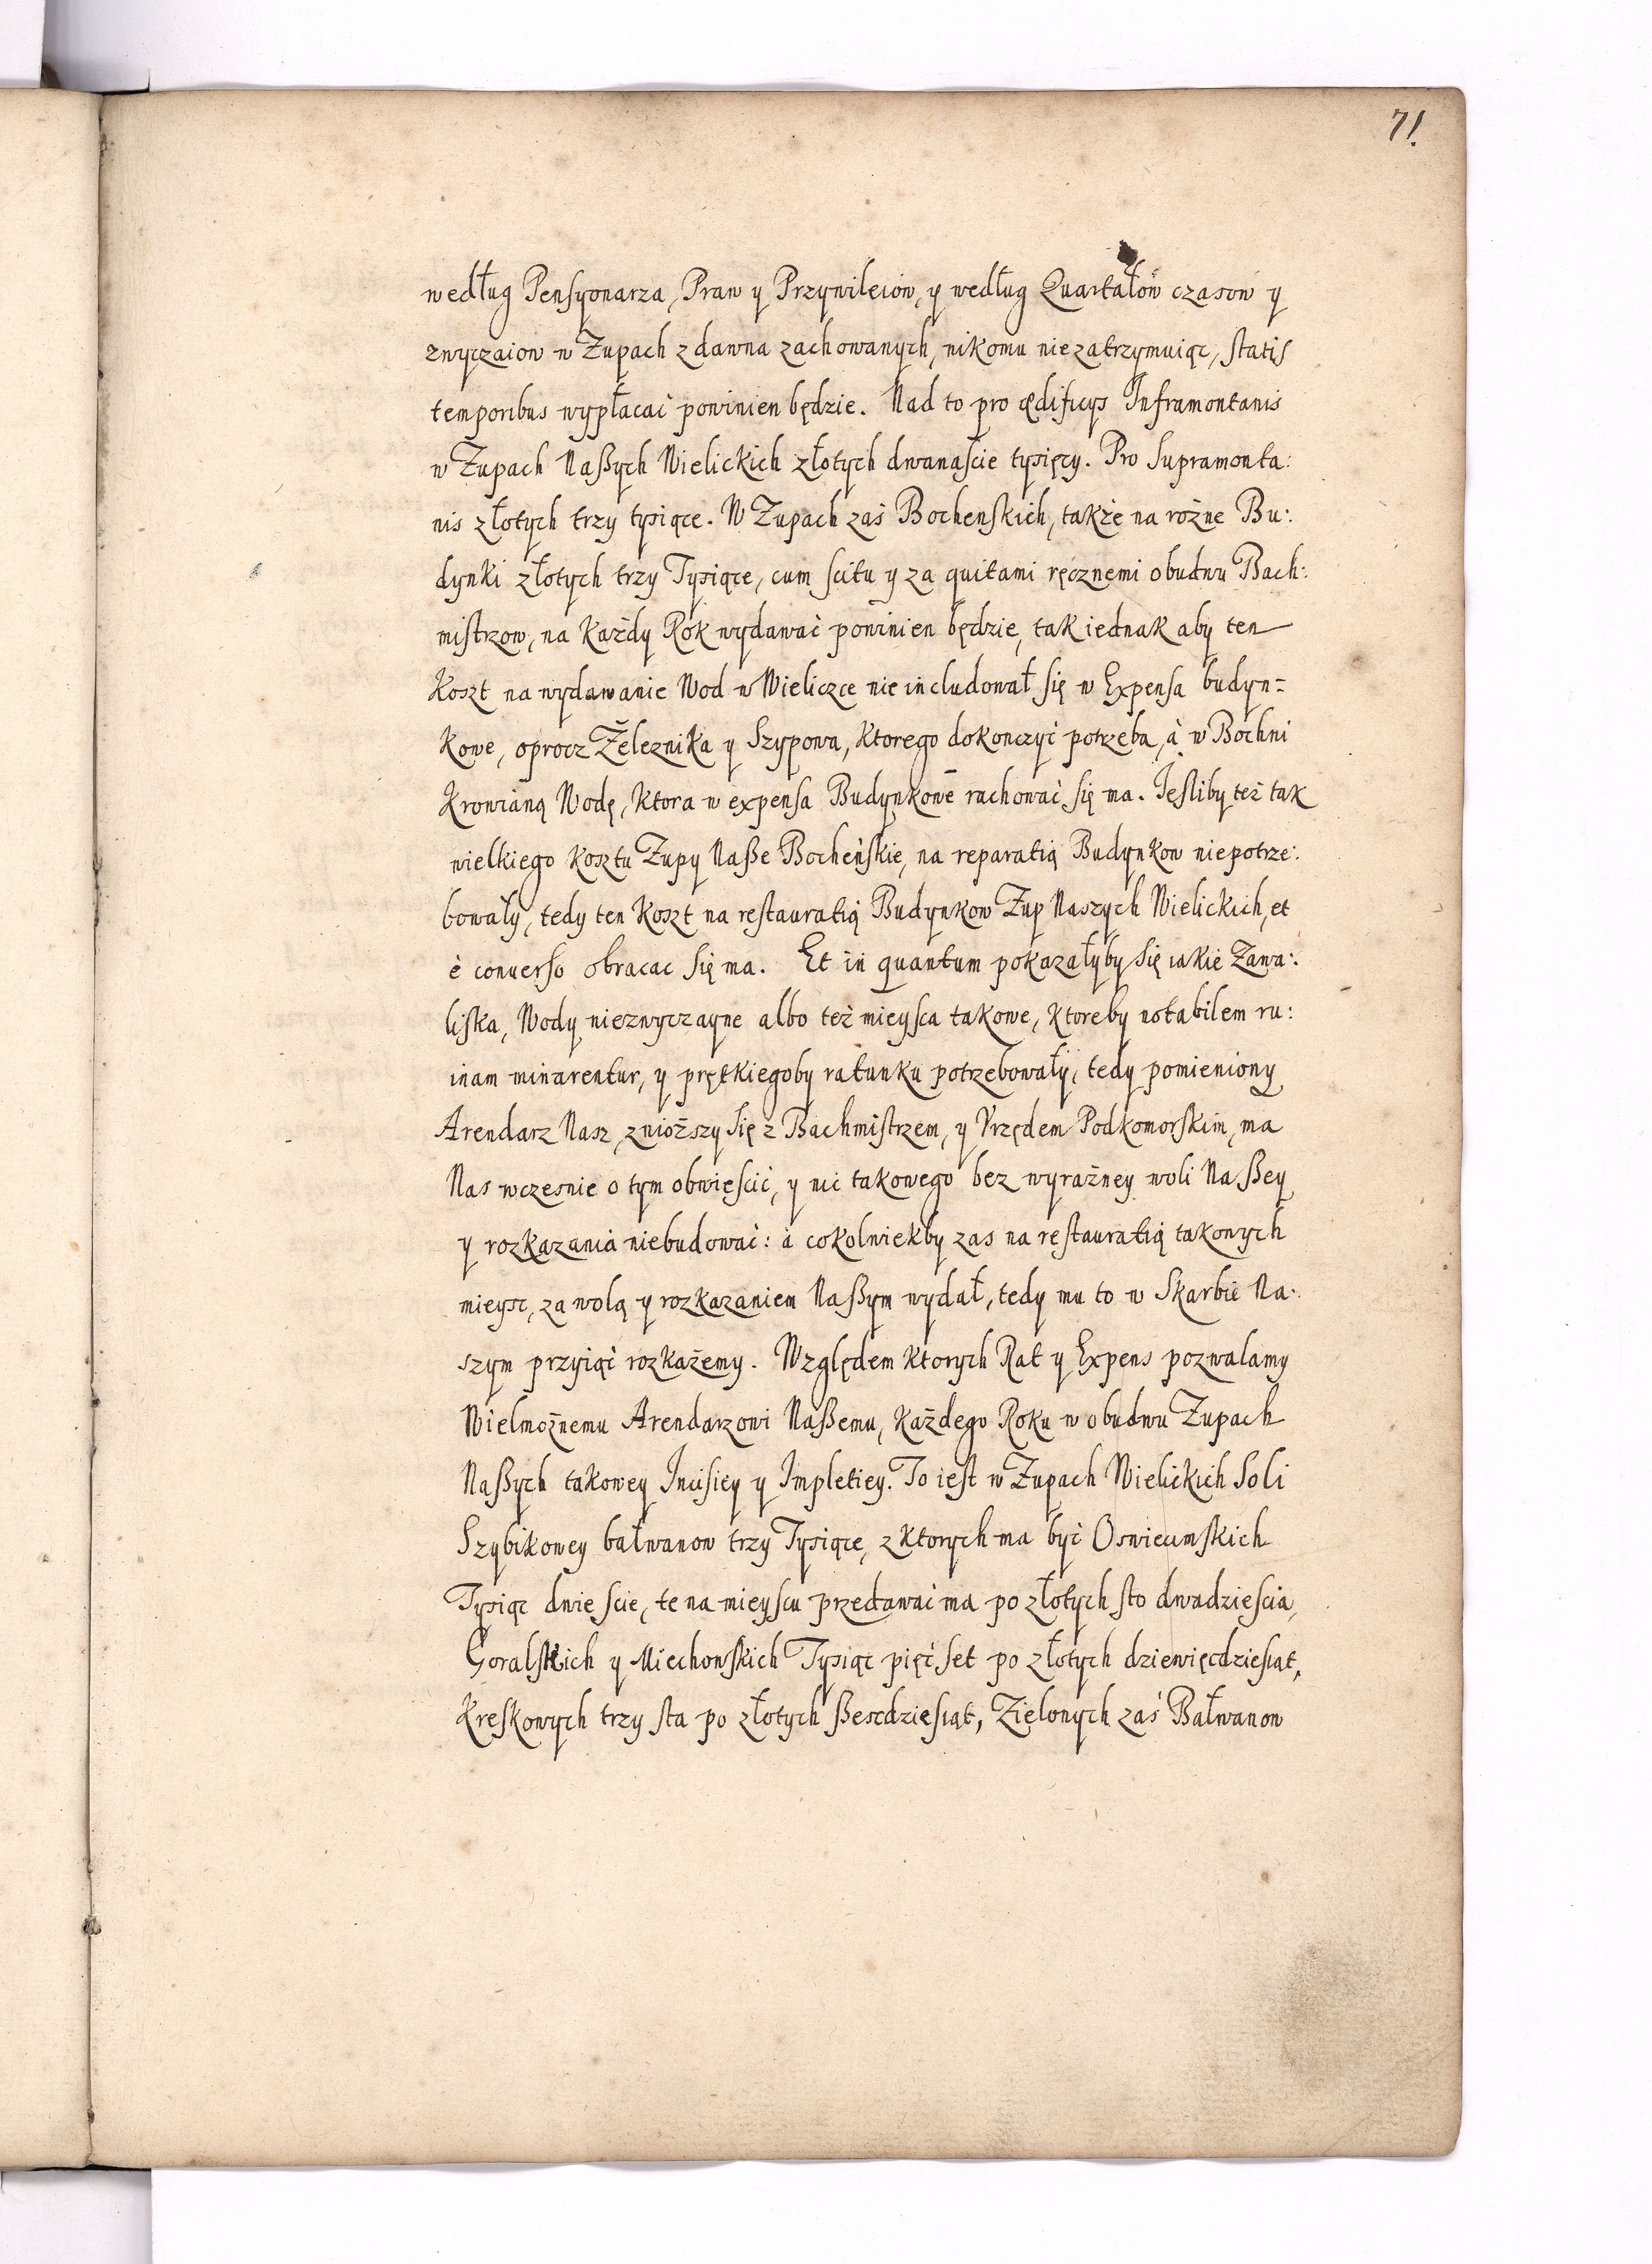 71.
według Pensyonarza, Praw y Przywileiow, y według Quartałów czasow y
zwyczaiow w Zupach z dawna zachowanych, nikomu niezatrzymuiąc, statis
temporibus wypłacać powinien będzie. Nad to pro ędificys Inframontanis
w Zupach Naßych Wielickich złotych dwanaście tysięcy. Pro Supramonta:
nis złotych trzy tysiące. W Zupach zaś Bochenskich, także na rożne Bu:
dynki złotych trzy Tysiące, cum scitu y za quitami ręcznemi obudwu Bach:
mistrzow, na każdy Rok wydawać powinien będzie, tak iednak aby ten
Koszt na wydawanie Wod w Wieliczce nie includował się w Expensa budyn=
kowe, oprocz Żeleznika y Szypowa, ktorego dokonczyć potrzeba, à w Bochni
Krowianą Wodę, ktora w expensa Budynkowe rachować się ma. Jeśliby też tak
wielkiego kosztu Zupy Naße Bocheńskie, na reparatią Budynkow niepotrze:
bowały, tedy ten Koszt na restauratią Budynkow Zup Naszych Wielickich, et
è conuerso obracac się ma. Et in quantum pokazałyby się iakie Zawa:
liska, Wody niezwyczayne albo też mieysca takowe, ktoreby notabilem ru:
inam minarentur, y prętkiegoby ratunku potrzebowały, tedy pomieniony
Arendarz Nasz, znioższy się z Bachmistrzem, y Vrzędem Podkomorskim, ma
Nas wczesnie o tym obwieścić, y nic takowego bez wyraźney woli Naßey
y rozkazania niebudować: à cokolwiekby zas na restauratią takowych
mieysc, za wolą y rozkazaniem Naßym wydał, tedy mu to w Skarbie Na:
szym przyiąć rozkażemy. Względem ktorych Rat y Expens pozwalamy
Wielmożnemu Arendarzowi Naßemu, każdego Roku w obudwu Zupach
Naßych takowey Incisiey y Impletiey. To iest w Zupach Wielickich Soli
Szybikowey bałwanow trzy Tysiące, z ktorych ma być Oswiecimskich
Tysiąc dwieście, te na mieyscu przedawać ma po złotych sto dwadzieścia,
Goralskich y Miechowskich Tysiąc pięćset po złotych dziewięcdziesiąt,
Kreskowych trzy sta po złotych ßescdziesiąt, Zielonych zaś Bałwanow